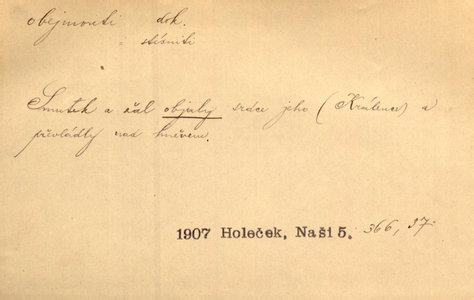 obejmouti dok.
= stísniti
Smutek a žal objaly srdce jeho (Králence) a
převládly nad hněvem.
1907 Holeček, Naši 5. 366, 27.